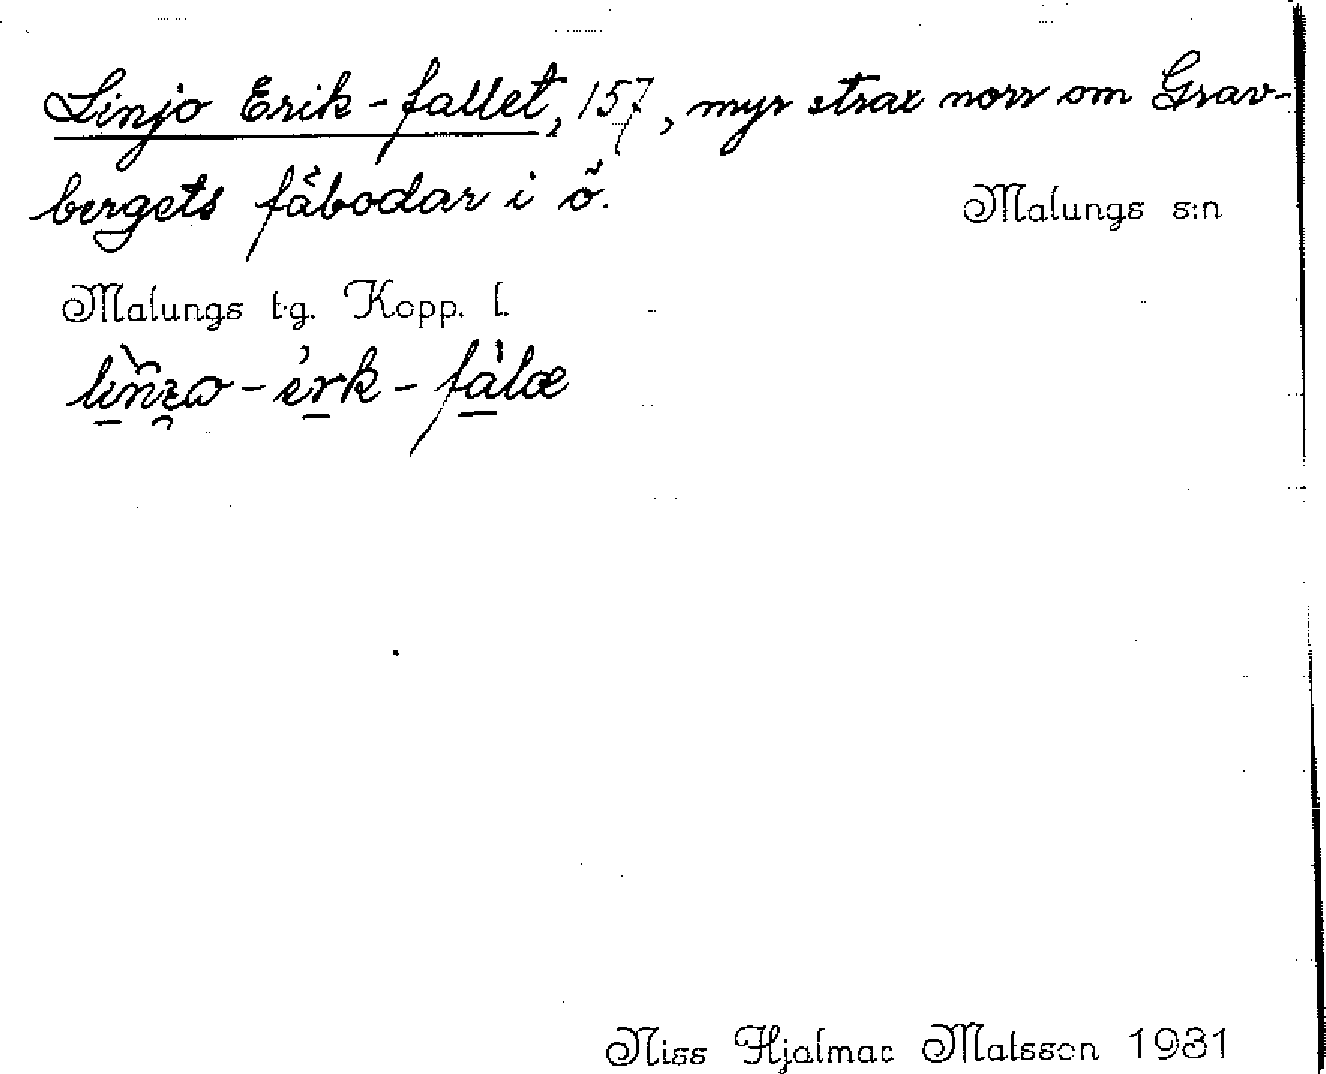 Linjo Erik-fallet, 157, myr strax norr om Grav-
bergets fäbodar i ö.
Malungs s:n
Malungs t.g. Kopp. l.
Niss Hjalmar Matsson 1931